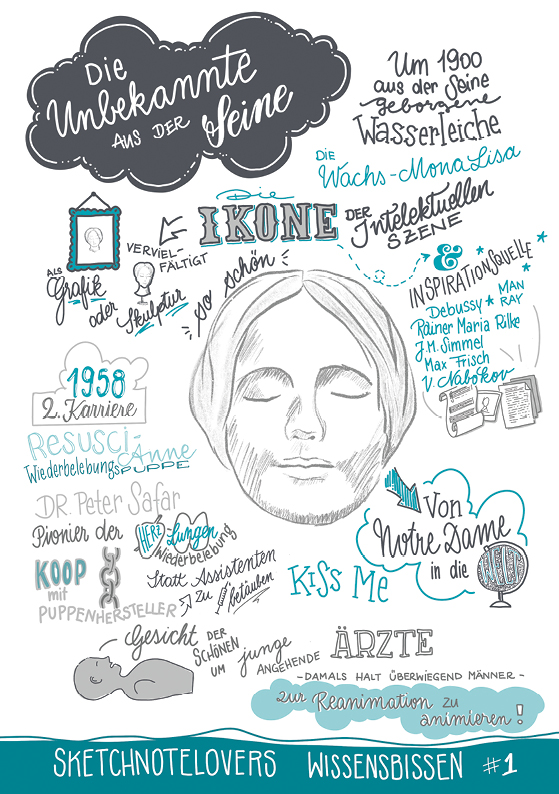 Die
Unbekannte
AUS DER Seine
Um 1900
aus der Seine
geborgene
Wasserleiche
DIE
Wachs-MonaLisa
Die
IKONE
DER Intelektuellen
SZENE
VERVIEL-
FÄLTIGT
ALS
Grafik
oder Skulptur
so schön
&
INSPIRATIONSQUELLE
Debussy * MAN
RAY
Rainer Maria Rilke
J.M. Simmel
Max Frisch
V. Nabokov
1958
2. Karriere
Resusci-
Anne
WiederbelebungsPUPPE
DR. Peter Safar
Pionier der
HERZ Lungen
Wiederbelebung
KOOP
mit
PUPPENHERSTELLER
Statt Assistenten
zu betäuben
Von
Notre Dame
in die
WELT
KISS Me
Gesicht DER
SCHÖNEN
UM junge
ANGEHENDE
ÄRZTE
-DAMALS HALT ÜBERWIEGEND MÄNNER-
zur Reanimation zu
animieren!
SKETCHNOTELOVERS WISSENSBISSEN #1